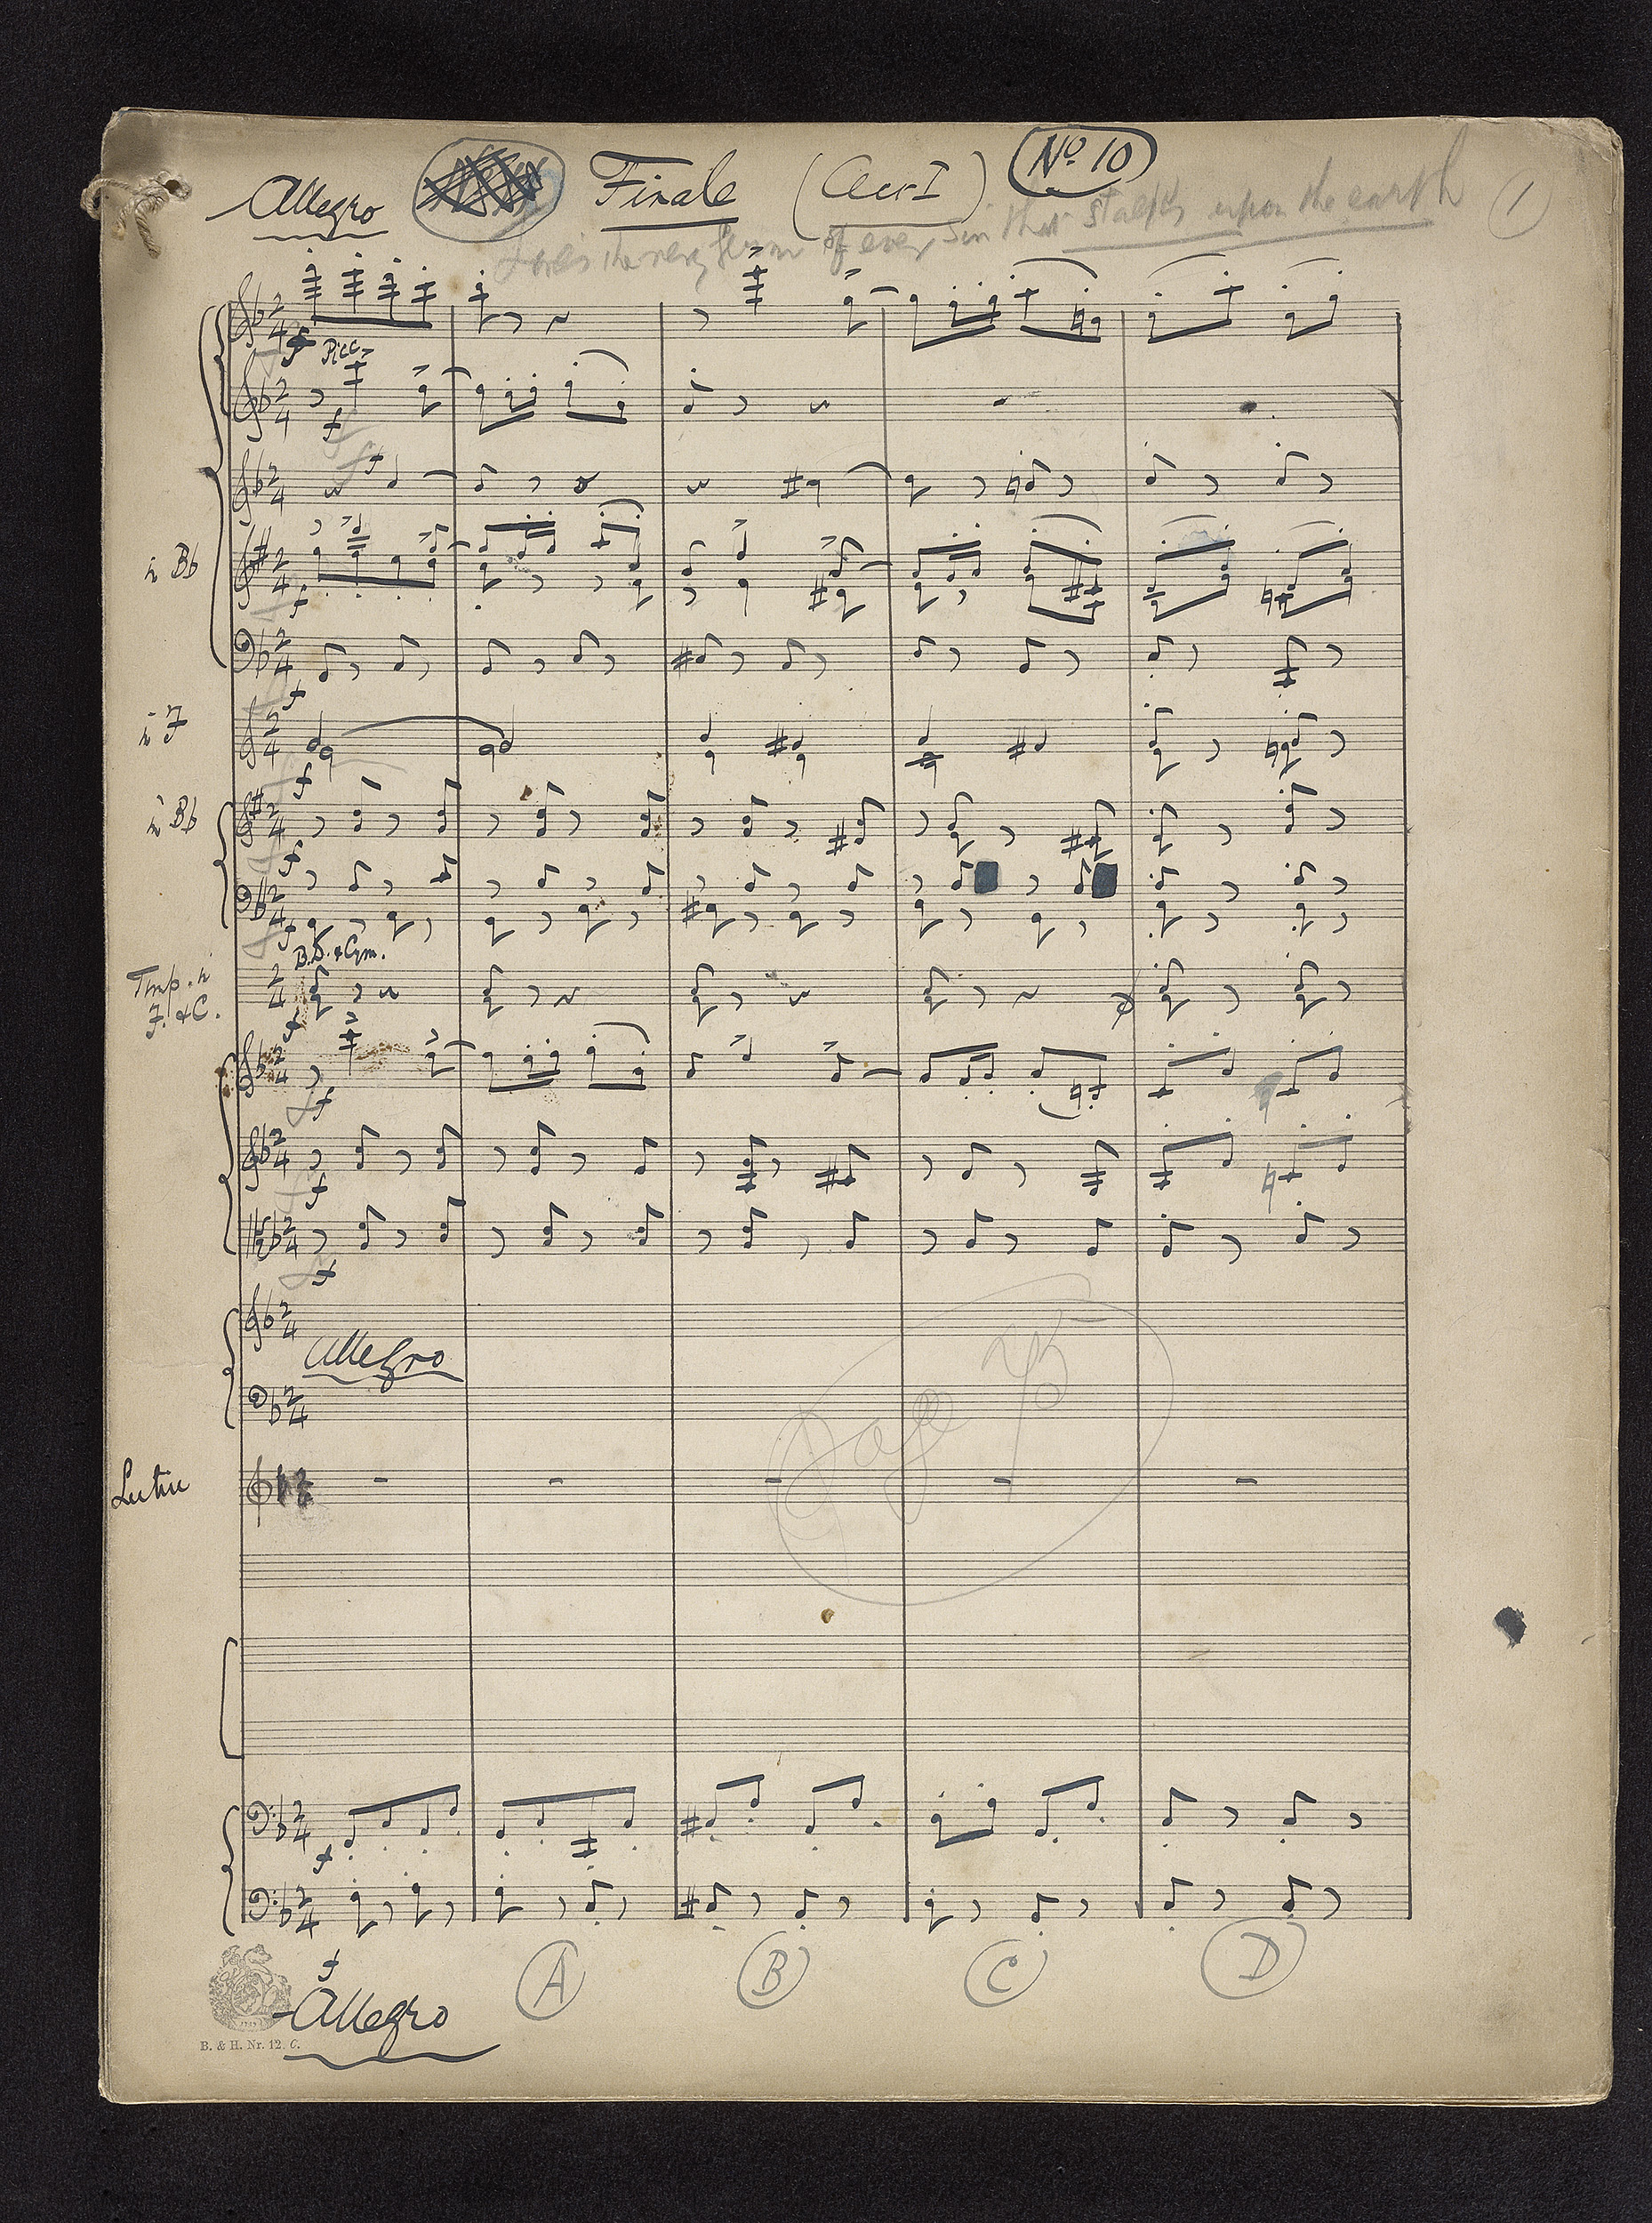 Allegro Finale (Act I) No 10
Love's the very germ of every sin that stalks upon the earth 1
f
Picc
f
f
in Bb
f
f
in F
f
in Bb
f
f
B.D. & Cym.
Timp. in
F. & C.
f
f
f
f
Allegro
Page 75
f
f
A B C D
Allegro
B. & H. Nr. 12. C.